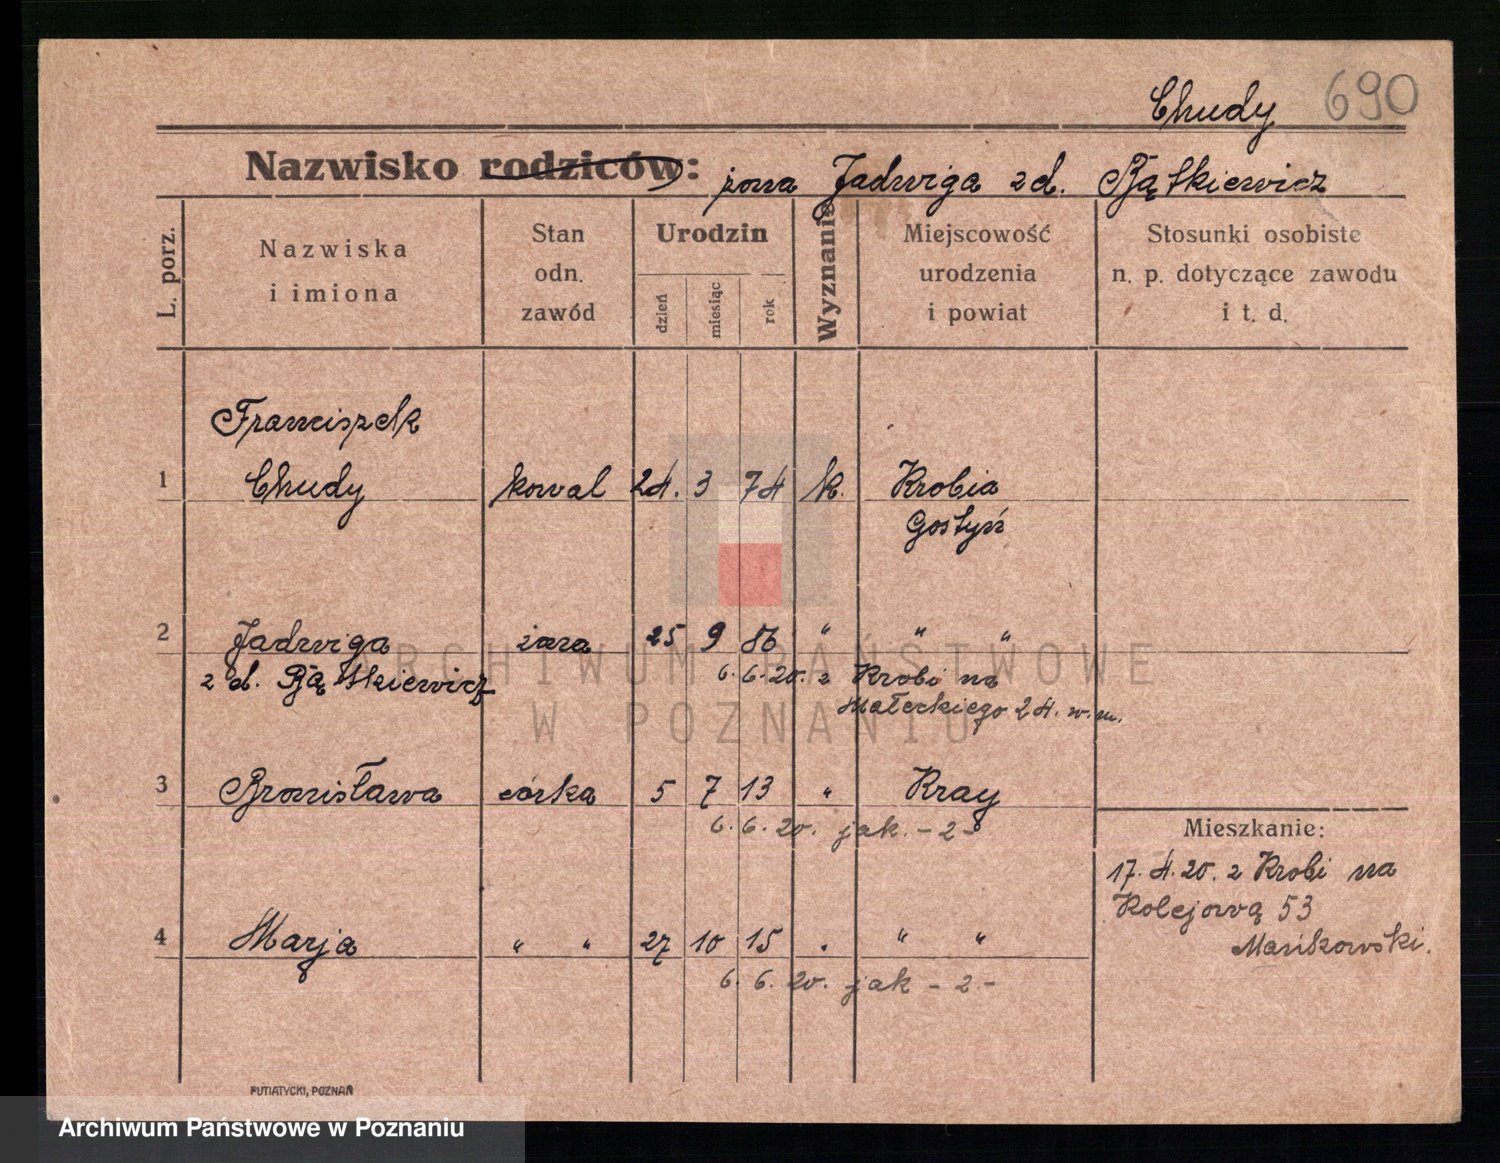 Chudy 690
Nazwisko rodziców: żona Jadwiga zd. Bątkiewicz
L. porz.
Nazwiska i imiona
Stan odn. zawód
Urodzin
dzień miesiąc rok
Wyznanie
Miejscowość urodzenia i powiat
Stosunki osobiste n. p. dotyczące zawodu i t. d.
Franciszek
1 Chudy kowal 24. 3 74 k. Krobia
Gostyń
2 Jadwiga żona 25 9 86 " " "
z d. Bątkiewicz 6.6.20. z Krobi na
Małeckiego 24. w. m.
3 Bronisława córka 5 7 13 " Kray
6.6.20. jak. - 2 -
Mieszkanie:
17. 4. 20. z Krobi na
Kolejową 53
Mańkowski.
4 Marja " " 27 10 15 " " "
6. 6. 20. jak - 2 -
PUTIATYCKI, POZNAŃ
ARCHIWUM PAŃSTWOWE
W POZNANIU
Archiwum Państwowe w Poznaniu